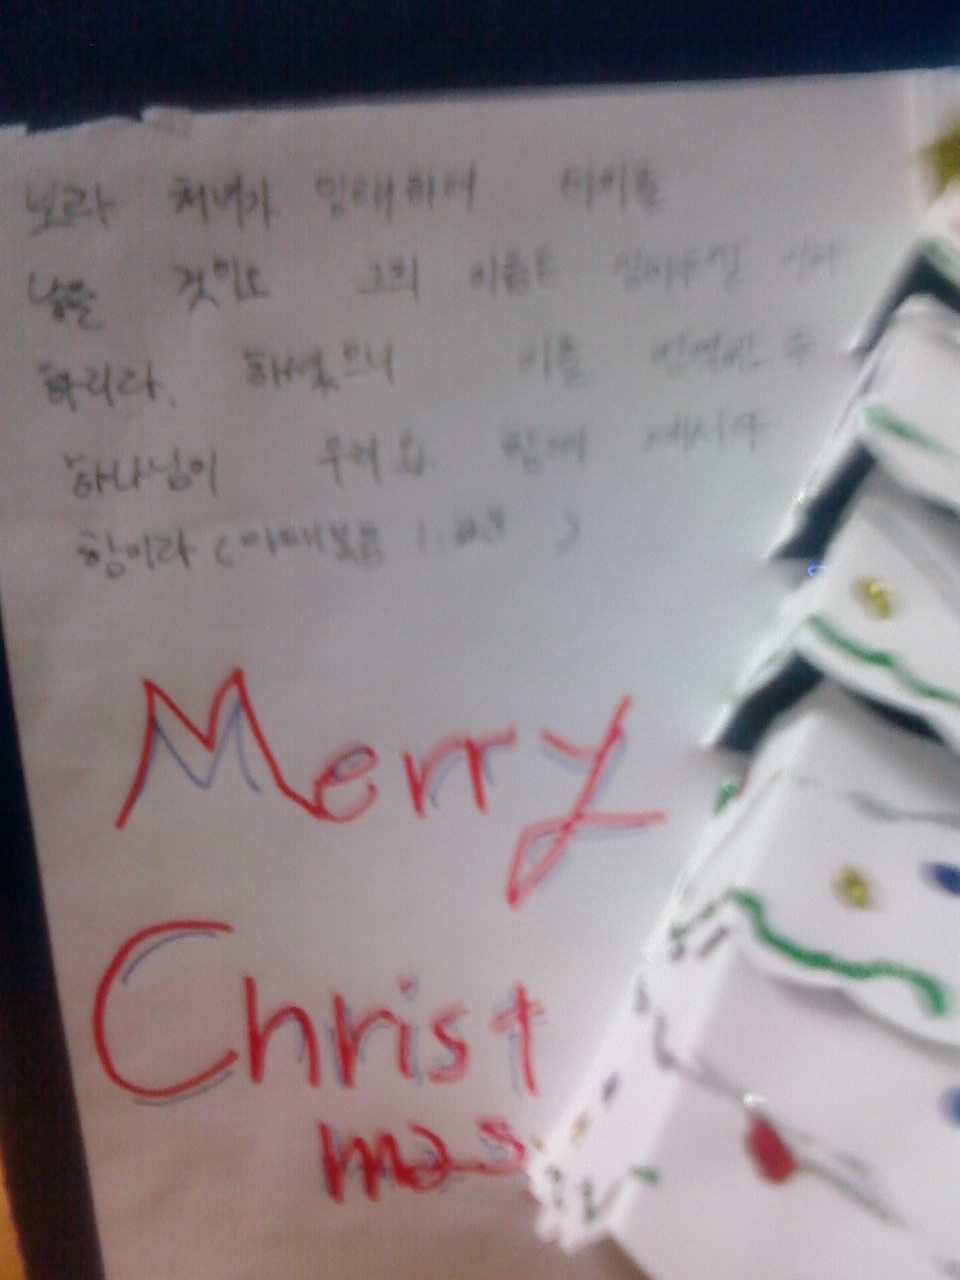 보라 처녀가 잉태하여 아이를
낳을 것이요 그의 이름은
하리라. 하셨으니 이를 번역한 즉
하나님이 우리와 함께 계시다
함이라 (마태복음 1:23)
Merry
Christ
mas